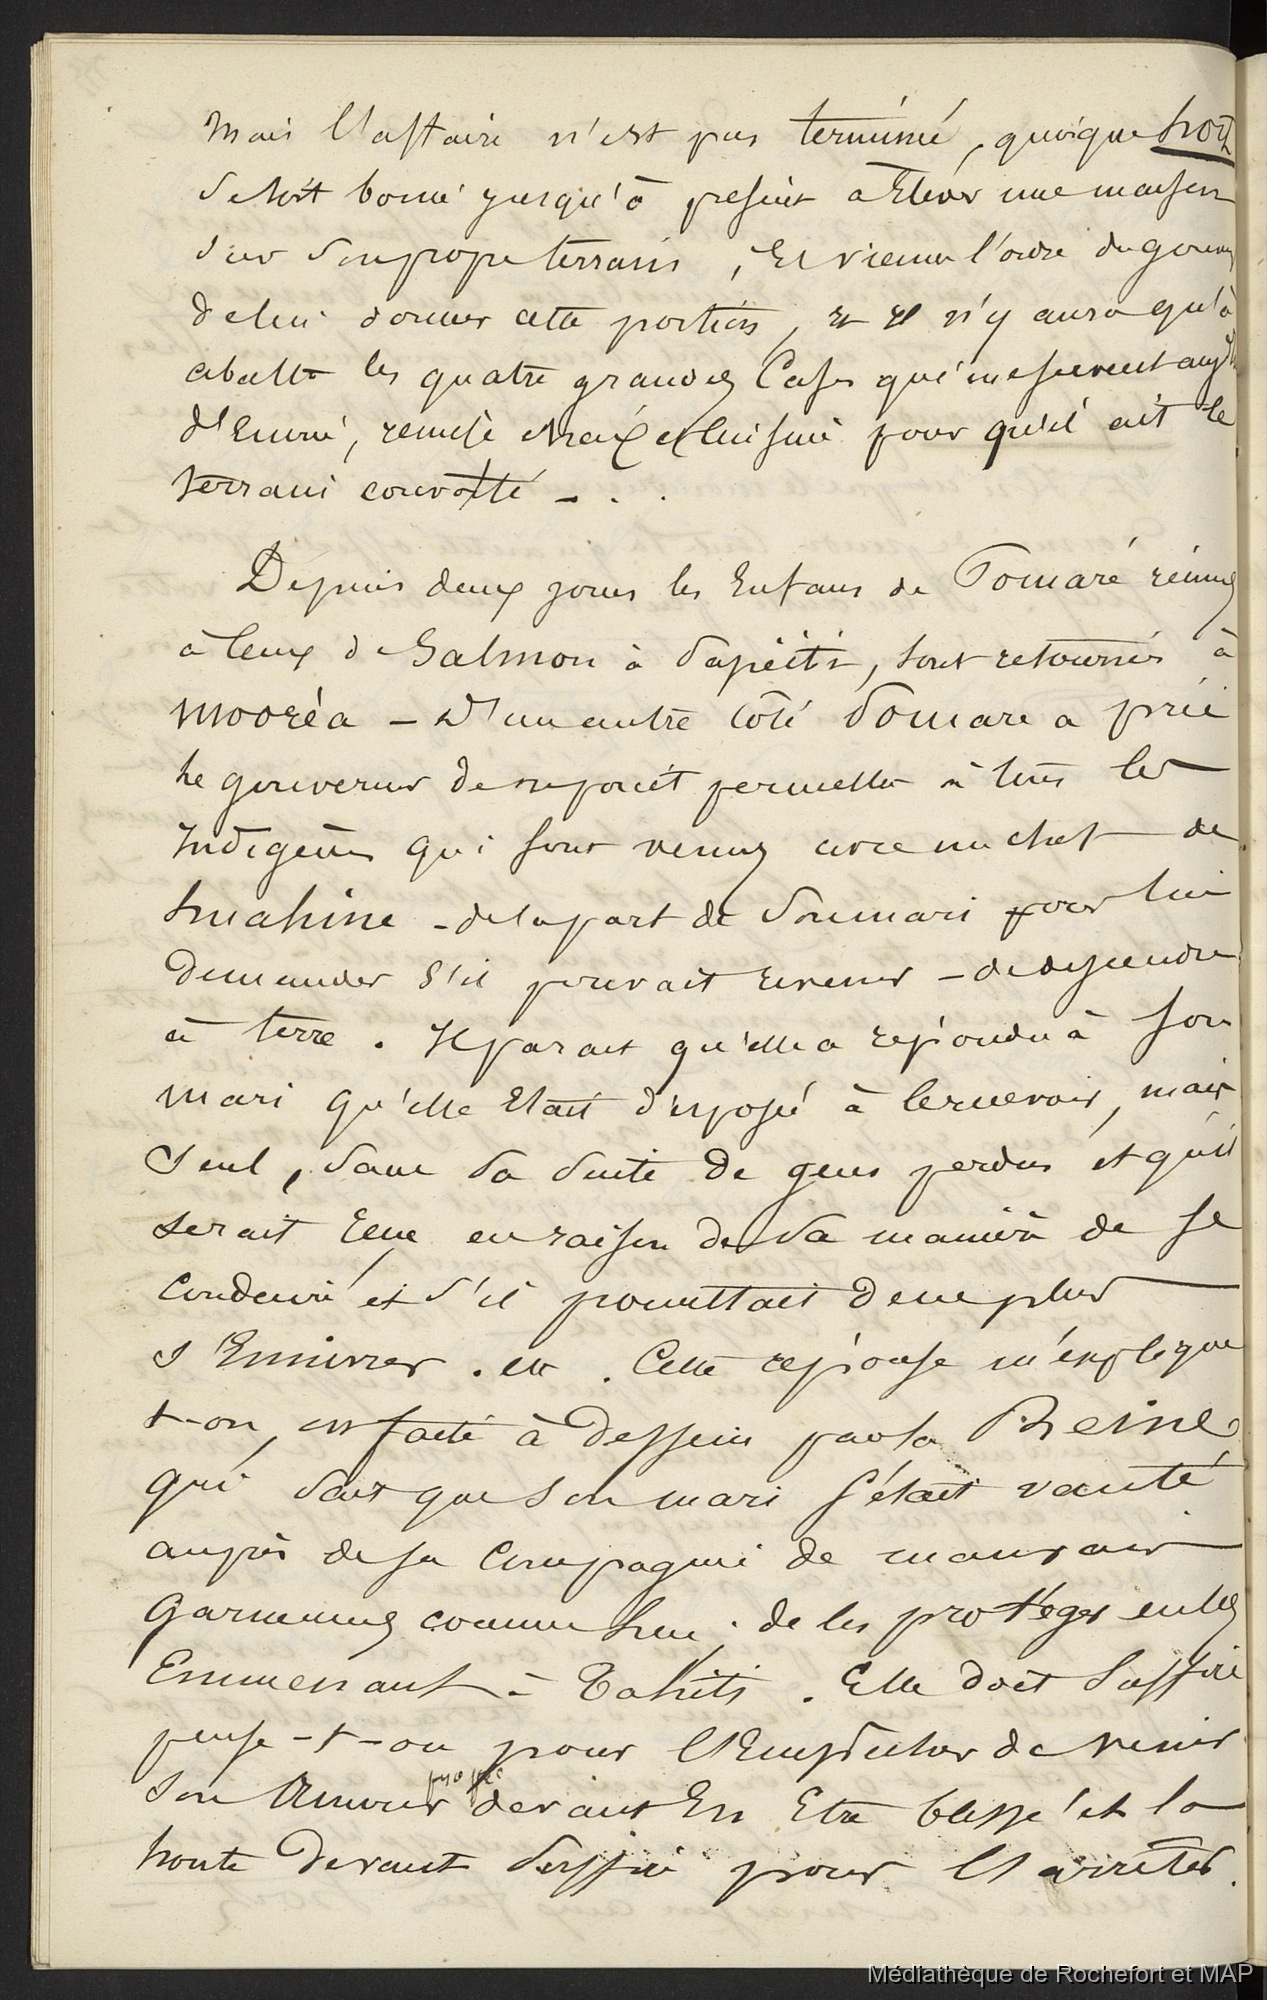 Mais l'affaire n'est pas terminé, quoique hort
se soit borné jusqu'à présent à Elever une maison
sur son propre terrain, Et vienne l'ordre du gouv
de lui donner cette portion, et il n'y aura qu'à
abattre les quatre grandes Cases qui me servent
d'Ecurie, remise et cuisine pour qu'il ait le
terrain convoité - . .
Depuis deux jours les Enfans de Pomaré réunis
à Ceux de Salmon à Papéiti, sont retournés à
Mooréa - D'un autre Côté Pomare a prié
le gouverneur de ne point permettre à tous les
Indigènes qui sont venus avec un chef de
huahine - de la part de son mari pour lui
demander s'il pouvait revenir - de descendre
à terre. Il parait qu'elle a répondu à son
mari qu'elle Etait disposé à le recevoir, mais
seul, sans sa suite de gens perdus et qu'il
serait en raison de sa manière de se
Conduire et s'il promettait de ne plus
s'Ennivrer . etc . Cette réponse m'explique
t-on, est faite à dessein par la Reine
qui sait que son mari s'était vanté
auprès de sa Compagnie de mauvais
Garnemens comme lui, de les protéger en les
Emmenant à Tahiti . Elle doit suffire
pense-t-on pour l'Empêcher de venir
son Amour propre devant En Etre blessé et la
honte devant suffire pour l'arrêter.
Médiathèque de Rochefort et MAP